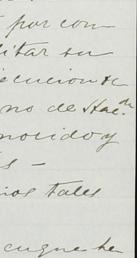 por con
litar su
ecucion de
no de Hac.da
nocido y
s –
nos tales
cugne he